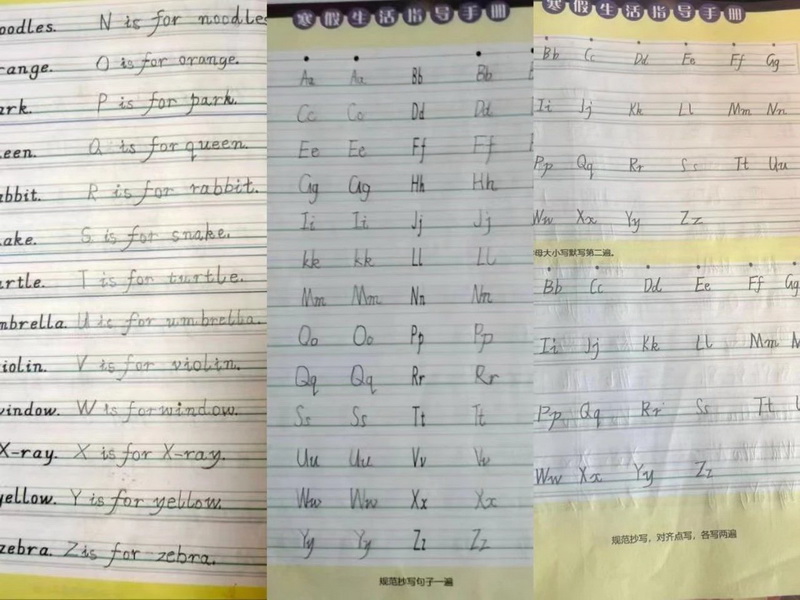 oodles. N is for noodles
range. O is for orange.
ark. P is for park.
een. Q is for queen.
abbit. R is for rabbit.
ake. S is for snake.
urtle. T is for turtle.
mbrella. U is for umbrella.
iolin. V is for violin.
window. W is for window.
X-ray. X is for X-ray.
yellow. Y is for yellow.
zebra. Z is for zebra.
寒假生活指导手册
Aa Aa Bb Bb
Cc Cc Dd Dd
Ee Ee Ff Ff
Gg Gg Hh Hh
Ii Ii Jj Jj
kk kk Ll Ll
Mm Mm Nn Nn
Oo Oo Pp Pp
Qq Qq Rr Rr
Ss Ss Tt Tt
Uu Uu Vv Vv
Ww Ww Xx Xx
Yy Yy Zz Zz
规范抄写句子一遍
寒假生活指导手册
Bb Cc Dd Ee Ff Gg
Ii Jj Kk Ll Mm Nn
Pp Qq Rr Ss Tt Uu
Ww Xx Yy Zz
母大小写默写第二遍。
Bb Cc Dd Ee Ff Gg
Ii Jj Kk Ll Mm
Pp Qq Rr Ss Tt
Ww Xx Yy Zz
规范抄写，对齐点写，各写两遍